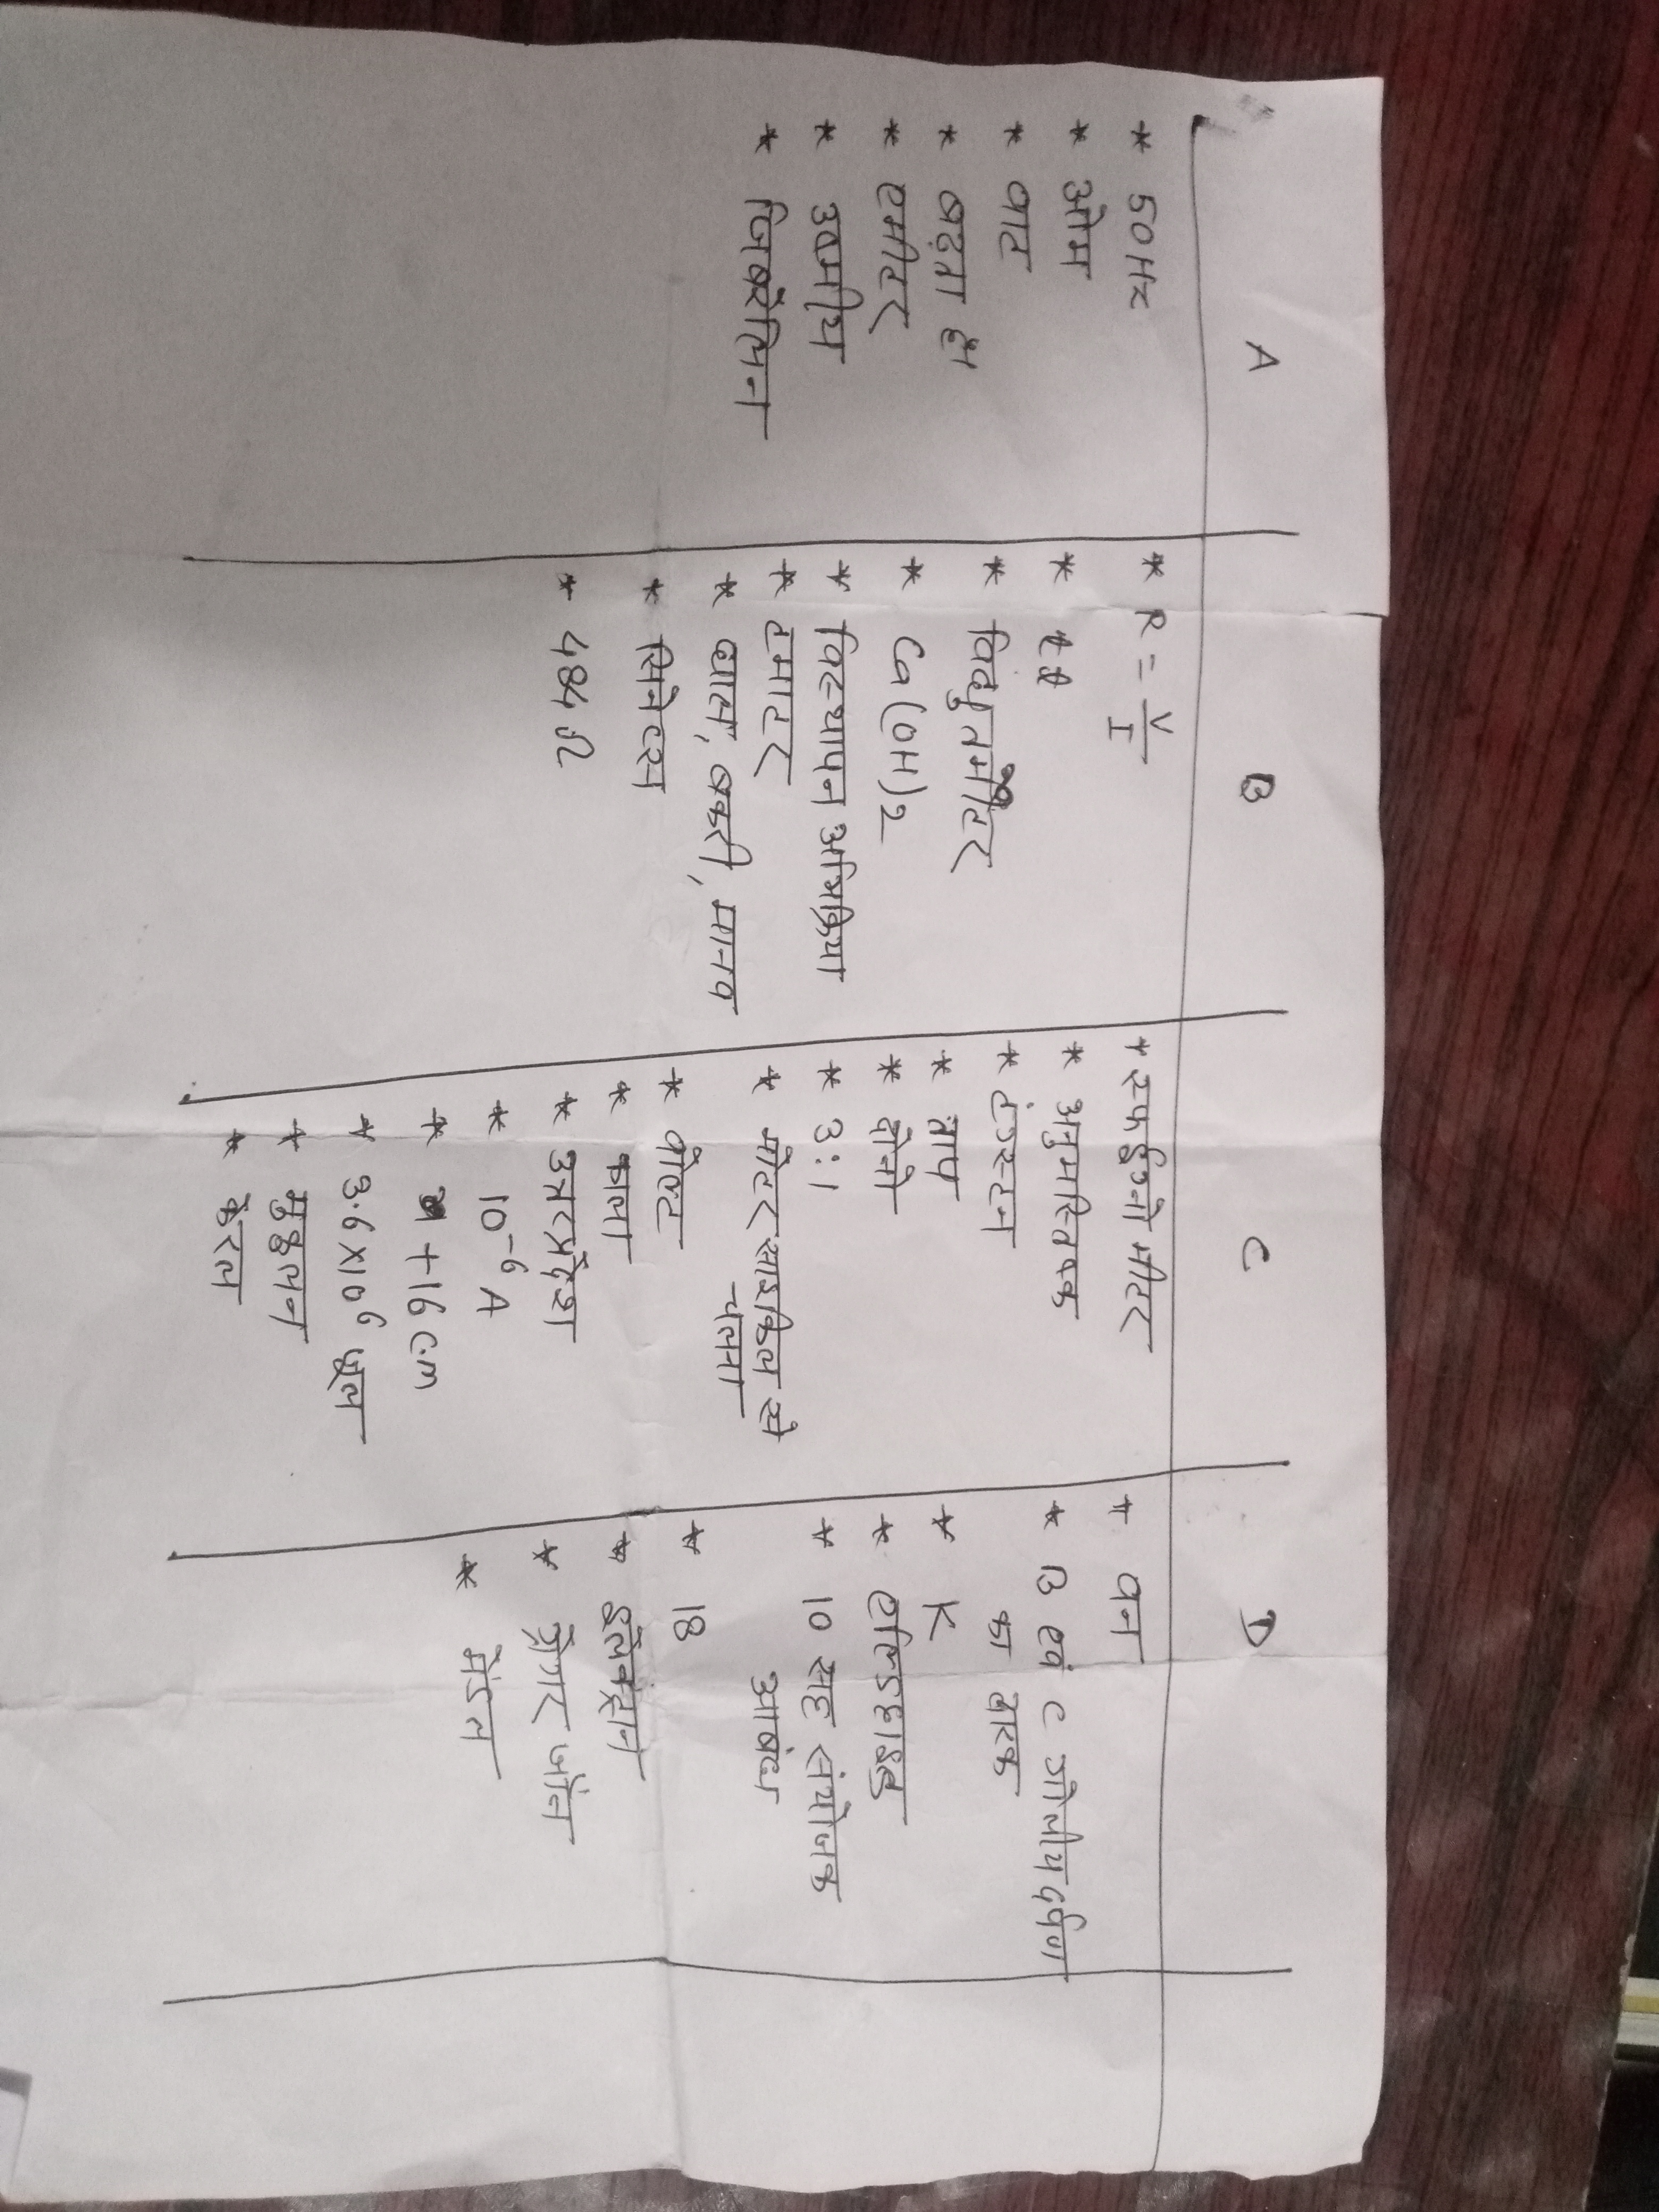 A
* 50Hz
* ओम
* वाट
* बढ़ता है
* एमीटर
* उष्मीय
* जिबरेलिन
B
* R = V/I
* tt
* विद्युतमीटर
* Ca(OH)2
* विस्थापन अभिक्रिया
* टमाटर
* घास, बकरी, मानव
* सिनेप्स
* 484 Ω
C
* स्फाईग्नोमीटर
* अनुमस्तिष्क
* टंगस्टन
* ताप
* दोनो
* 3:1
* मोटरसाइकिल से
चलना
* वोल्ट
* काला
* उत्तरप्रदेश
* 10-6 A
* +16 c.m
* 3.6×106 जूल
* मुकुलन
* केरल
D
* वन
* B एवं C गोलीय दर्पण
का
* K
* एल्डिहाइड
* 10 सह संयोजक
आबंध
* 18
* इलेक्ट्रान
* ग्रेगर जॉन
* मेंडल